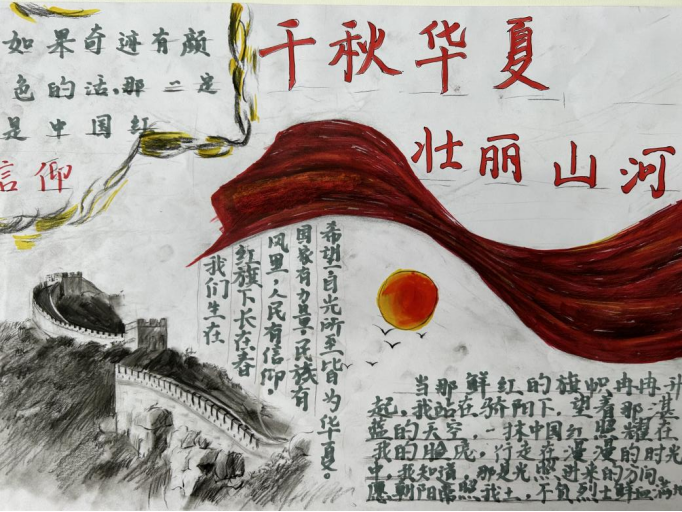 如果奇迹有颜
色的话,那一定
是中国红
信仰
千秋华夏
壮丽山河
我们生在
红旗下长在春
风里,人民有信仰,
国家有力量,民族有
希望目光所至皆为华夏。
当那鲜红的旗帜冉冉升
起,我站在骄阳下,望着那湛
蓝的天空,一抹中国红照耀在
我的脸庞,行走在漫漫的时光
中,我知道,那是光照进来的方向。
愿朝阳常照我土,不负烈士鲜血满地